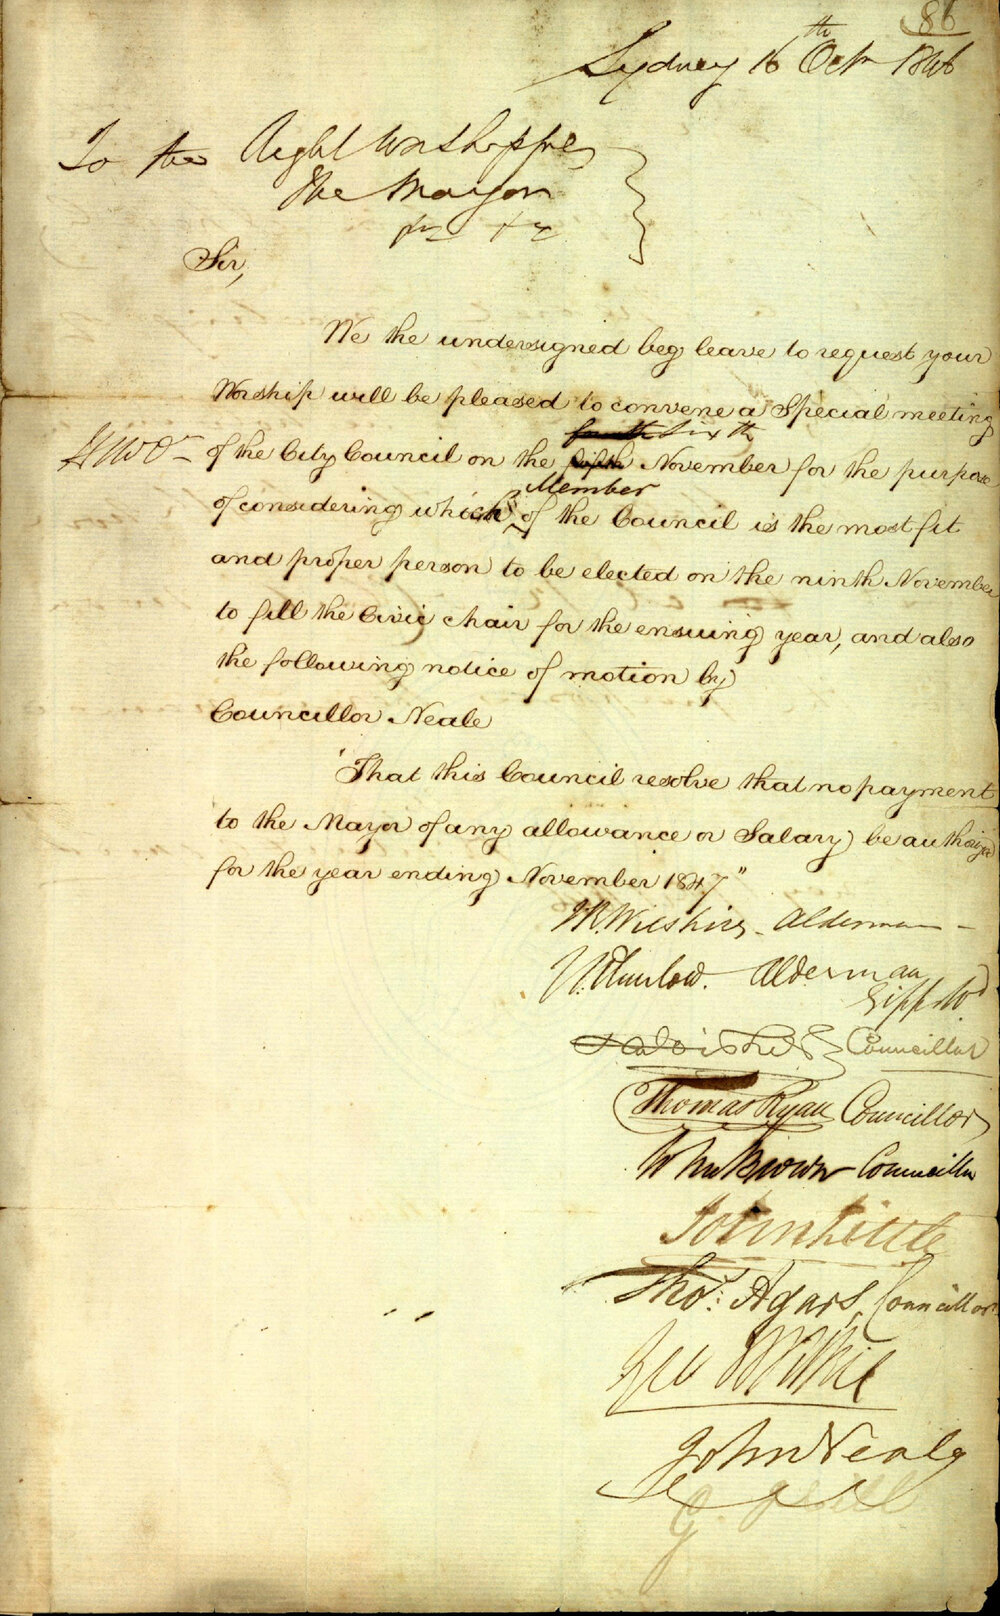 86
Sydney 16th Octr 1846
To the Right Worshipful
The Mayor
&c &c
Sir,
We the undersigned beg leave to request your
Worship will be pleased to convene a Special meeting
fourth Sixth
of the City Council on the fifth November for the purpose
Member
of considering which of the Council is the most fit
and proper person to be elected on the ninth November
to fill the Civic chair for the ensuing year, and also
the following notice of motion by
Councillor Neale
"That this Council resolve that no payment
to the Mayor of any allowance or Salary be authorized
for the year ending November 1847"
Wilshire Alderman
Thurlow. Alderman
Gipps Wd
Councillor
Thomas Ryan Councillor
John Brown Councillor
John Little
Thos. Agars, Councillor
Geo Wilkie
John Neale
G. Hill